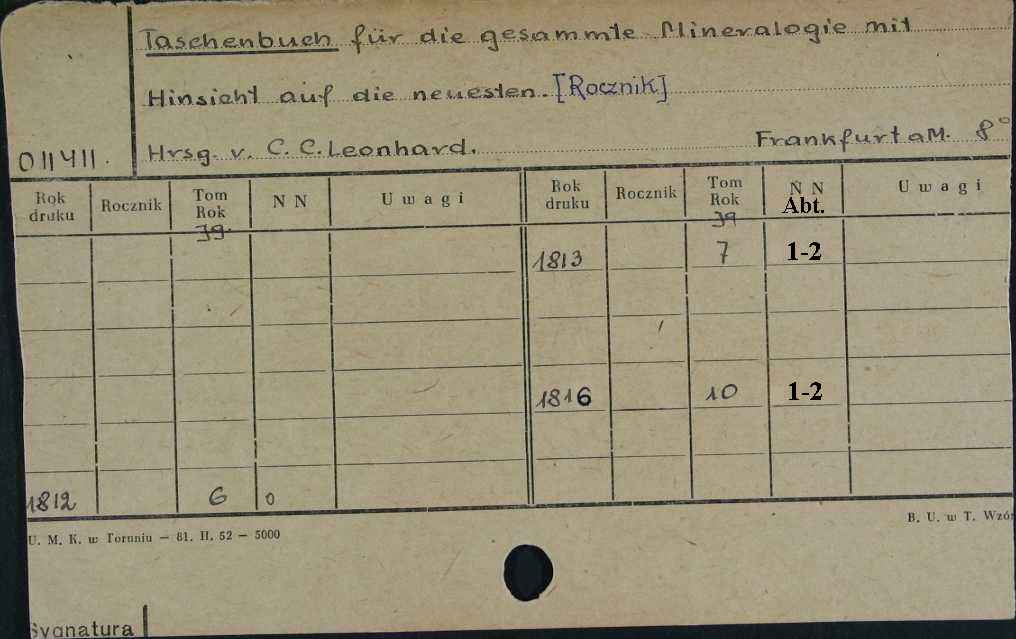 Taschenbuch für die gesammte Mineralogie mit
Hinsicht auf die neuesten. [Rocznik]
011411. Hrsg. v. C. C. Leonhard. Frankfurt aM. 8°
Rok druku Rocznik Tom Rok Jg. N N U w a g i Rok druku Rocznik Tom Rok Jg N N Abt. U w a g i
1813 7 1-2
1816 10 1-2
1812 6 0
U. M. K. w Toruniu — 81. II. 52 — 5000 B. U. w T. Wzór
Sygnatura